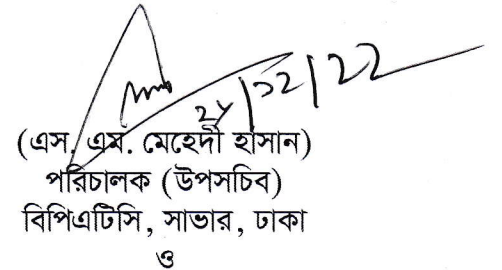 (এস. এম. মেহেদী হাসান)
পরিচালক (উপসচিব)
বিপিএটিসি, সাভার, ঢাকা
ও